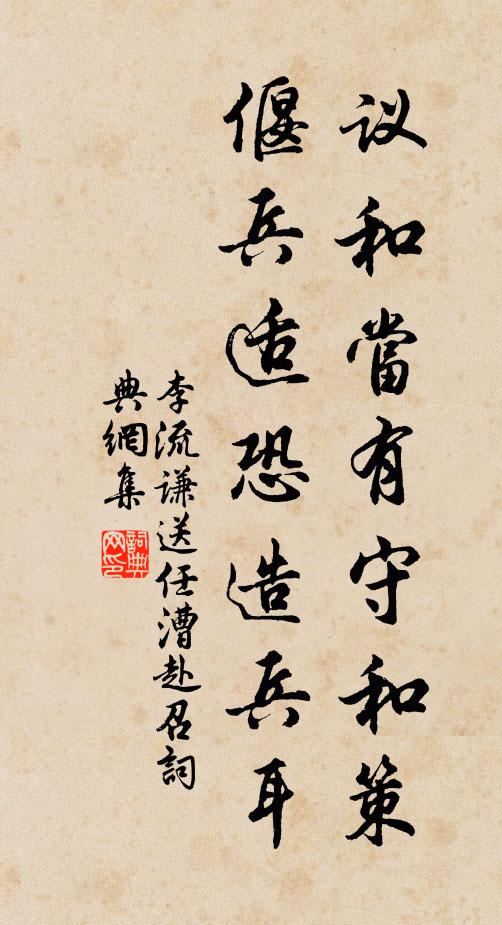 议和當有守和策
偃兵适恐造兵耳
李流谦送任漕赴召詞
典網集
詞典網印